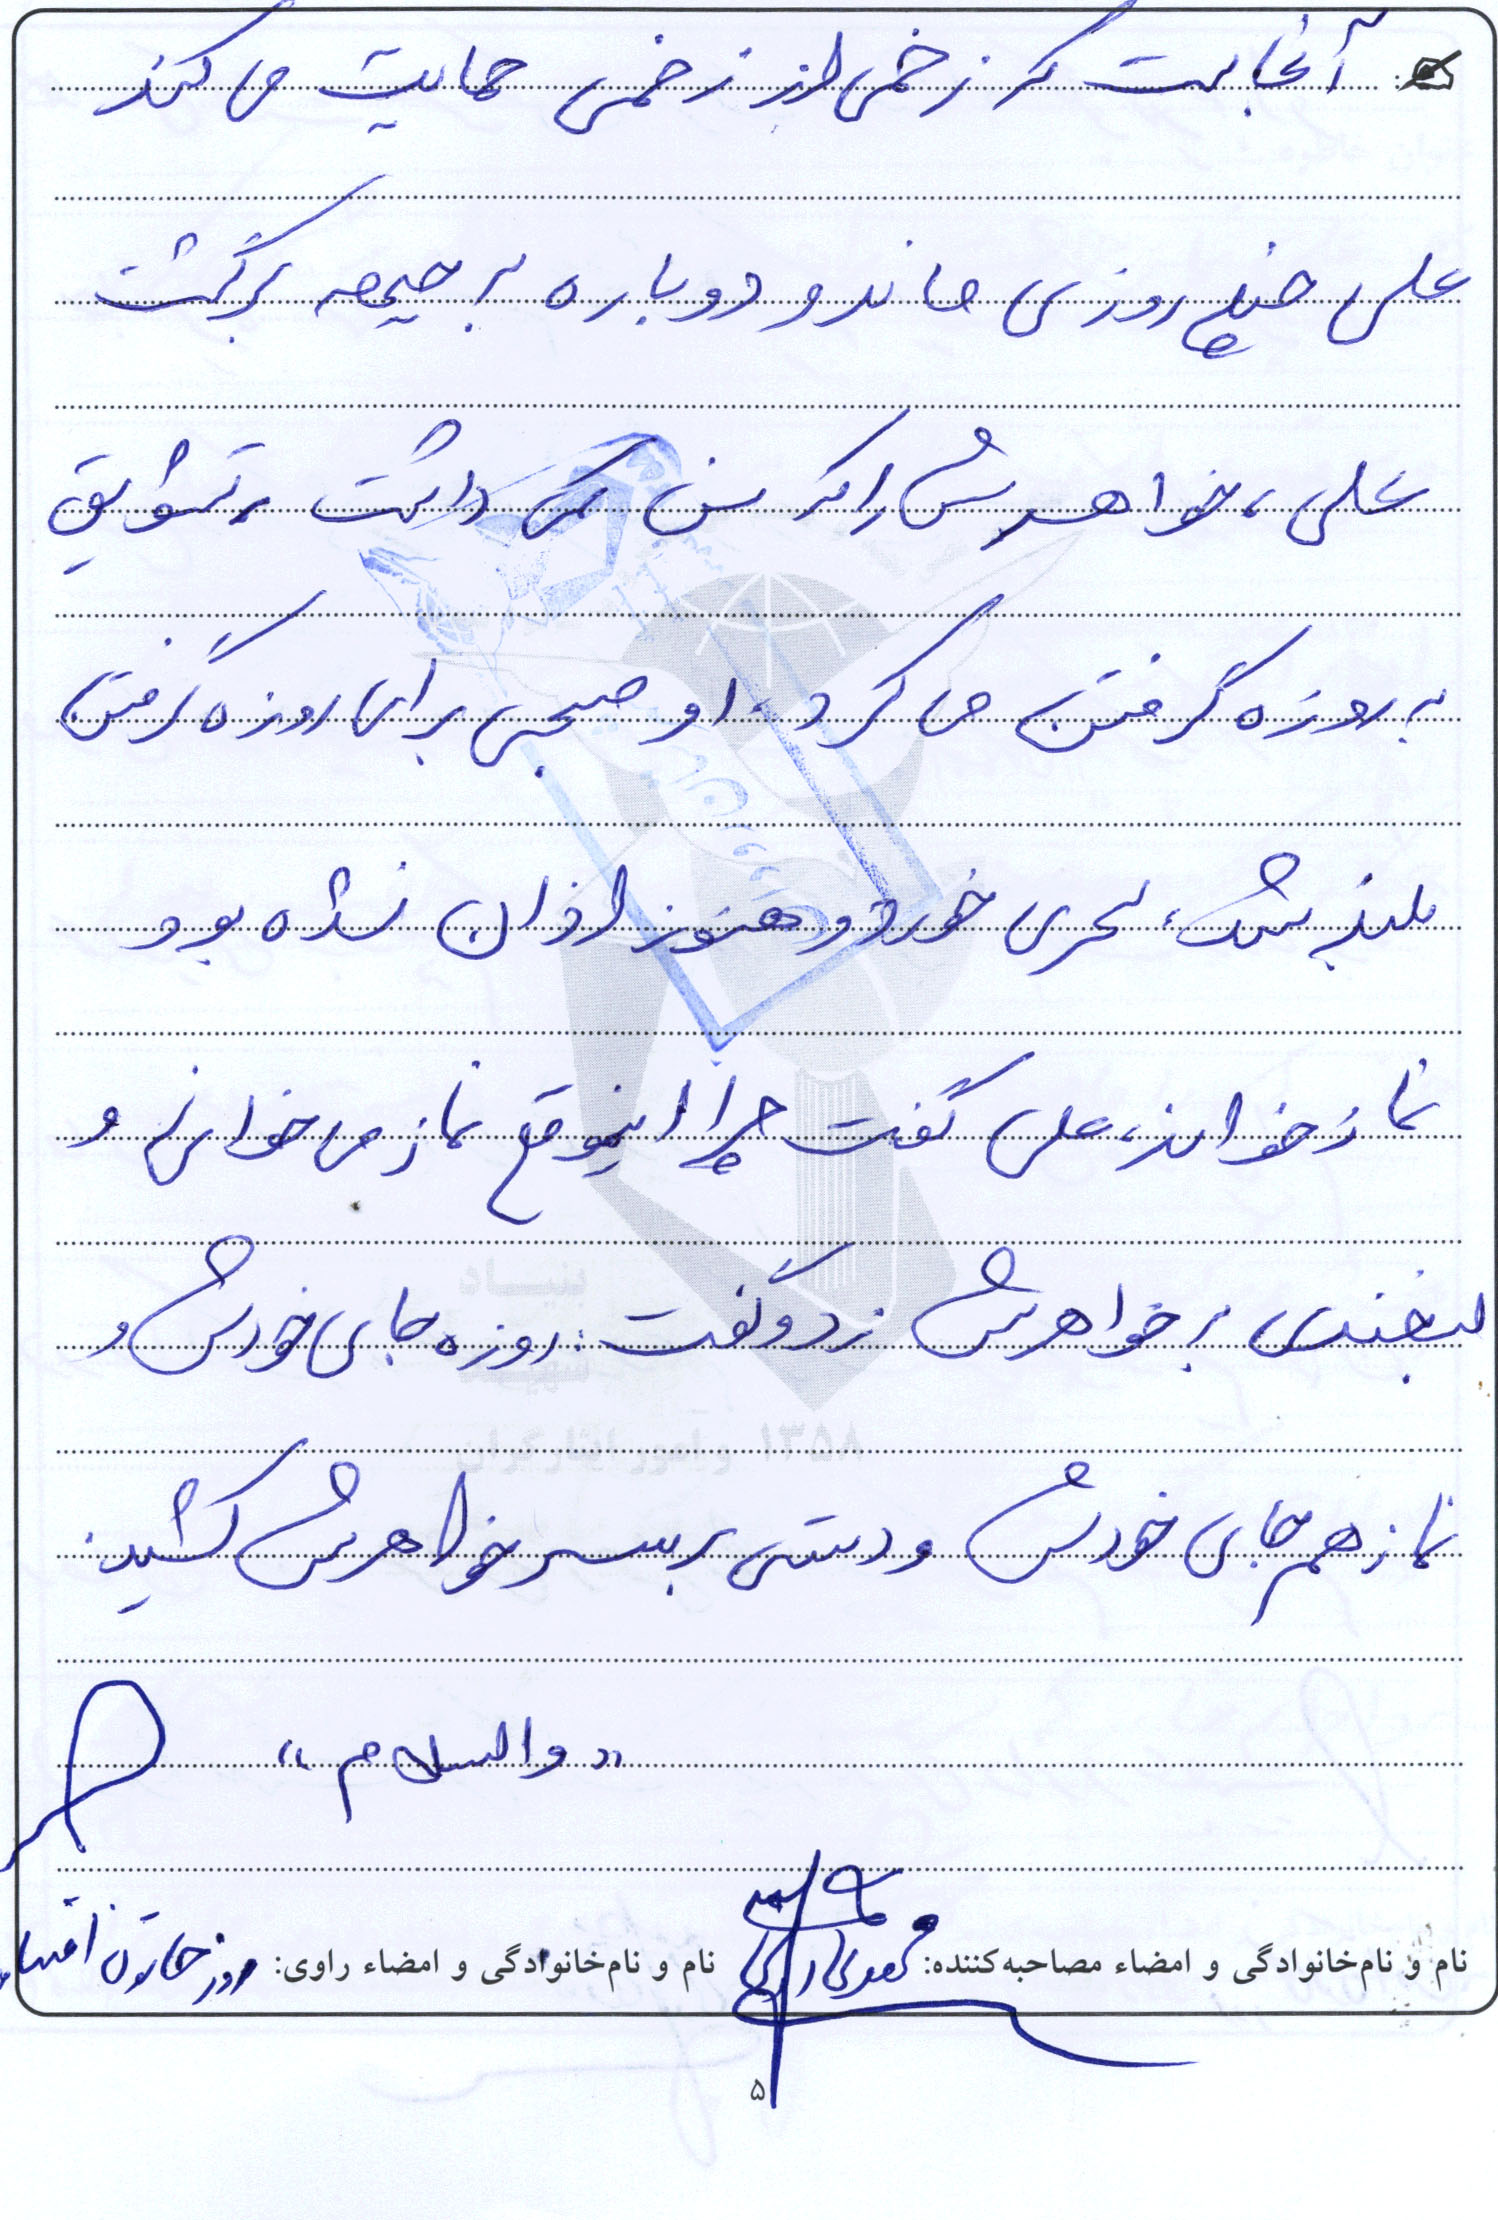 آنجاست که زخمی از زخمی حمایت می کند
علی چند روزی ماند و دوباره به جبهه برگشت
علی، خواهرش را که سن کمی داشت، تشویق
به روزه گرفتن می کرد. او صبحی برای روزه گرفتن
بلند شد، سحری خورد و هنوز اذان نشده بود
نماز خواند، علی گفت چرا اینموقع نماز می خوانی و
لبخندی به خواهرش زد و گفت: روزه جای خودش و
نماز هم جای خودش و دستی بر سر خواهرش کشید.
«والسلام»
نام و نام‌خانوادگی و امضاء مصاحبه‌کننده:
نام و نام‌خانوادگی و امضاء راوی:
بنیاد
شهید
و امور ایثارگران ۱۳۵۸
۵